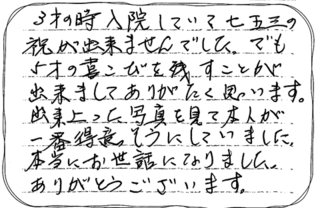 3才の時入院していて七五三の
祝が出来ませんでした。でも
5才の喜こびを残すことが
出来ましてありがたく思います。
出来上った写真を見て本人が
一番得意そうにしていました。
本当にお世話になりました。
ありがとうございます。